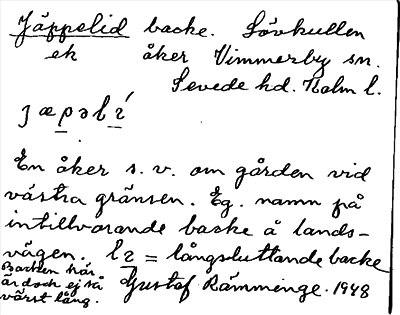 Jäppelid backe. Lövkullen
ek åker Vimmerby sn.
Sevede hd. Kalm l.
En åker s. v. om gården vid
västra gränsen. Eg. namn på
intillvarande backe å lands-
vägen. = långsluttande backe
Backen här
är dock ej så
värst lång.
Gustaf Rämminge. 1948